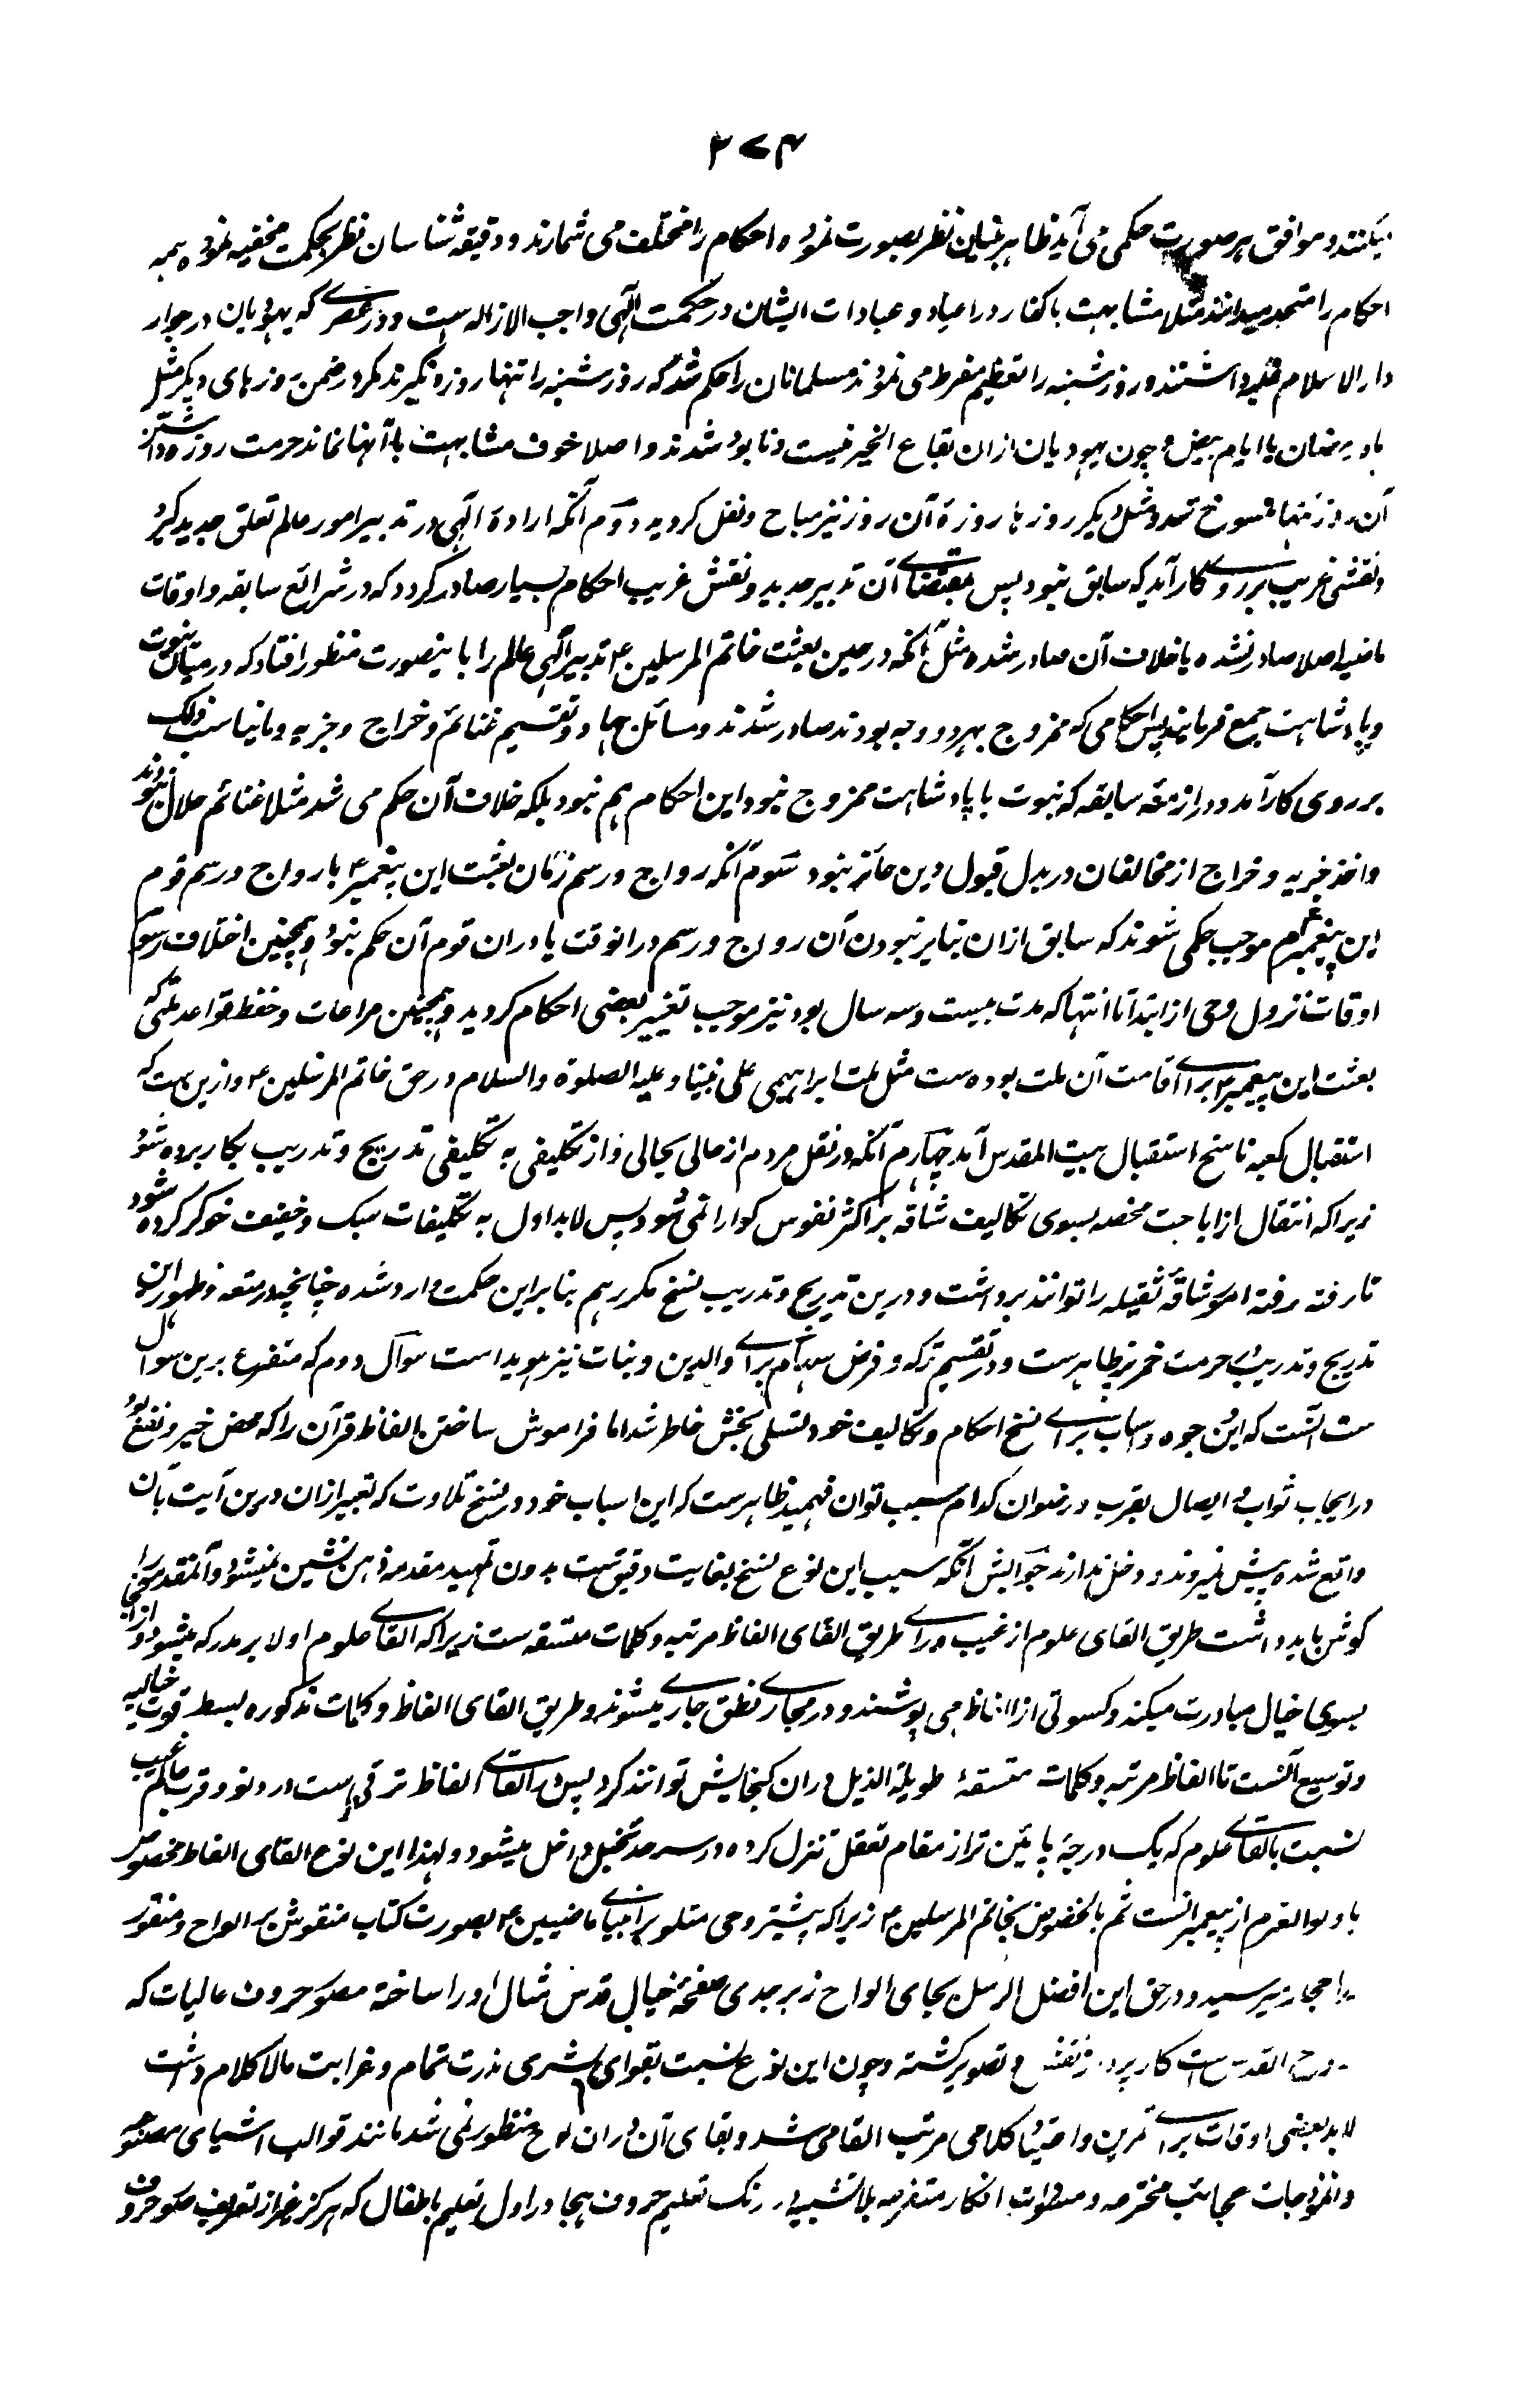 ۳۷۴
میکنند و موافق هر صورت حکمی می آید ظاهر بینان نظر بصورت نموده احکام را مختلف می شمارند و دقیقه شناسان نظر بحکمت مخفیه نموده همه
احکام را متحد میدانند مثلا مشابهت با کفار در اعیاد و عبادات ایشان در حکمت الٰهی واجب الازاله است و در عصرے که یهودیان در جوار
دار الاسلام غلبه داشتند و روز شنبه را تعظیم مفرط می نمودند مسلمانان را حکم شد که روز شنبه را تنها روزه نگیرند مگر در ضمن روزهای دیگر مثل
ماه رمضان یا ایام بیض و چون یهودیان ازان بقاع الخیر نیست و نابود شدند و اصلا خوف مشابهت با آنها نماند حرمت روزه داشتن
آن روز تنها منسوخ شد و مثل دیگر روزها روزهٔ آن روز نیز مباح و نفل گردید دوم آنکه ارادهٔ الٰهی در تدبیر امور عالم تعلق جدید گیرد
و نقشی غریب بر روے کار آید که سابق نبود پس بمقتضاے آن تدبیر جدید و نقش غریب احکام بسیار صادر گردد که در شرائع سابقه و اوقات
ماضیه اصلا صادر نشده یا خلاف آن صادر شده مثل آنکه در حین بعثت خاتم المرسلین ۴ تدبیر الٰهی عالم را باینصورت منظور افتاد که در میان نبوت
و پادشاهت جمع فرمایند پس احکامی که ممزوج بهر دو وجه بودند صادر شدند و مسائل جهاد و تقسیم غنائم و خراج و جزیه و مایناسب ذلک
بر روی کار آمد و در ازمنه سابقه که نبوت با پادشاهت ممزوج نبود این احکام هم نبود بلکه خلاف آن حکم می شد مثلا غنائم حلال نبودند
و اخذ جزیه و خراج از مخالفان در بدل قبول دین جائز نبود سوم آنکه رواج و رسم زمان بعثت این پیغمبر ۴ با رواج و رسم قوم
این پیغمبر ۴ هم موجب حکمی شوند که سابق ازان بنابر نبودن آن رواج و رسم درانوقت یا دران قوم آن حکم نبود و همچنین اختلاف رسوم
اوقات نزول وحی از ابتدا تا انتها که مدت بیست و سه سال بود نیز موجب تغییر بعضی احکام گردید و همچنین مراعات و حفظ قواعد ملتی که
بعثت این پیغمبر ۴ براے اقامت آن ملت بوده ست مثل ملت ابراهیمی علی نبینا و علیه الصلوة والسلام در حق خاتم المرسلین ۴ و ازین جهت که
استقبال کعبه ناسخ استقبال بیت المقدس آمد چهارم آنکه در نقل مردم از حالی بحالی و از تکلیفی به تکلیفی تدریج و تدریب بکار برده شود
زیرا که انتقال از اباحت محضه بسوی تکالیف شاقه بر اکثر نفوس گوارا نمی شود پس لابد اول به تکلیفات سبک و خفیف خوگر کرده شود
تا رفته رفته امور شاقهٔ ثقیله را توانند برداشت و درین تدریج و تدریب نسخ مکرر هم بنابر این حکمت وارد شده چنانچه در متعه و ظهور این
تدریج و تدریب در حرمت خمر نیز ظاهرست و در تقسیم ترکه و فرض سهام براے والدین و بنات نیز هویداست سوال دوم که متفرع برین سوال
ست آنست که این وجوه و اسباب براے نسخ احکام و تکالیف خود تسلی بخش خاطر شد اما فراموش ساختن الفاظ قرآن را که محض خیر و نفع بود
در ایجاب ثواب و ایصال بقرب و رضوان کدام سبب توان فهمید ظاهرست که این اسباب خود در نسخ تلاوت که تعبیر ازان درین آیت بآن
واقع شده پیش نمیروند و دخل ندارند جوابش آنکه سبب این نوع نسخ بغایت دقیق ست بدون تمهید مقدمه ذهن نشین نمیشود و آنمقدمه را
گوش باید داشت طریق القای علوم از غیب وراے طریق القای الفاظ مرتبه و کلمات متسقه ست زیرا که القاے علوم اولا بر مدرکه میشود و ازان
بسوی خیال مبادرت میکند و کسوتی از الفاظ می پوشند و در مجاری نطق جاری میشوند و طریق القای الفاظ و کلمات مذکوره بسط قوت خیالیه
و توسیع آنست تا الفاظ مرتبه و کلمات متسقهٔ طویلة الذیل دران گنجایش توانند کرد پس در القاے الفاظ ترقی ست در دنو و قرب عالم غیب
نسبت بالقاے علوم که یک درجه پائین تر از مقام تعقل تنزل کرده در سرحد تخیل داخل میشود و لهذا این نوع القای الفاظ مخصوص
باولوالعزم از پیغمبرانست ثم بالخصوص بخاتم المرسلین ۴ زیرا که پیشتر وحی متلو بر انبیاے ماضیین ۴ بصورت کتاب منقوش بر الواح و منقور
بر احجار میرسید و در حق این افضل الرسل بجای الواح زبرجدی صفحهٔ خیال قدس مثال او را ساخته مصور حروف عالیات که
روح القدس است کار پرداز نقش و تصویر گشته و چون این نوع نسبت بقوای بشری ندرت تمام و غرابت مالا کلام داشت
لابد بعضی اوقات براے تمرین و اعتیاد کلامی مرتب القا می شد و بقای آن دران لوح منظور نمی شد مانند قوالب اشیای مصنوعه
و انموذجات عجائب مخترعه و مسودات افکار متفرعه بلا تشبیه در رنگ تعلیم حروف هجا در اول تعلیم باطفال که هرگز غیر از تعریف صور حروف